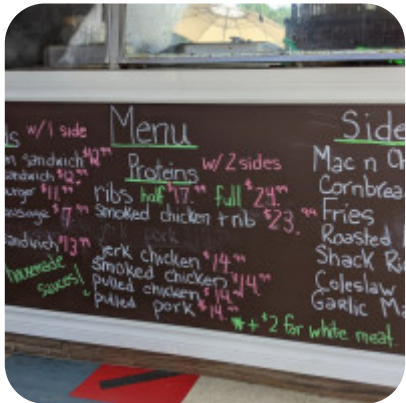 w/1 side
sandwich $12.99
$12.99
$11.99
$7.99
sandwich $13.99
homemade
sauces!
Menu
Proteins w/2 sides
ribs half $17.99 full $29.99
Smoked chicken + rib $23.99
jerk chicken $14.99
smoked chicken $14.99
pulled chicken $14.99
pulled pork $14.99
* + $2 for white meat.
Side
Mac n Ch
Cornbrea
Fries
Roasted
Shack Ri
Coleslaw
Garlic Ma